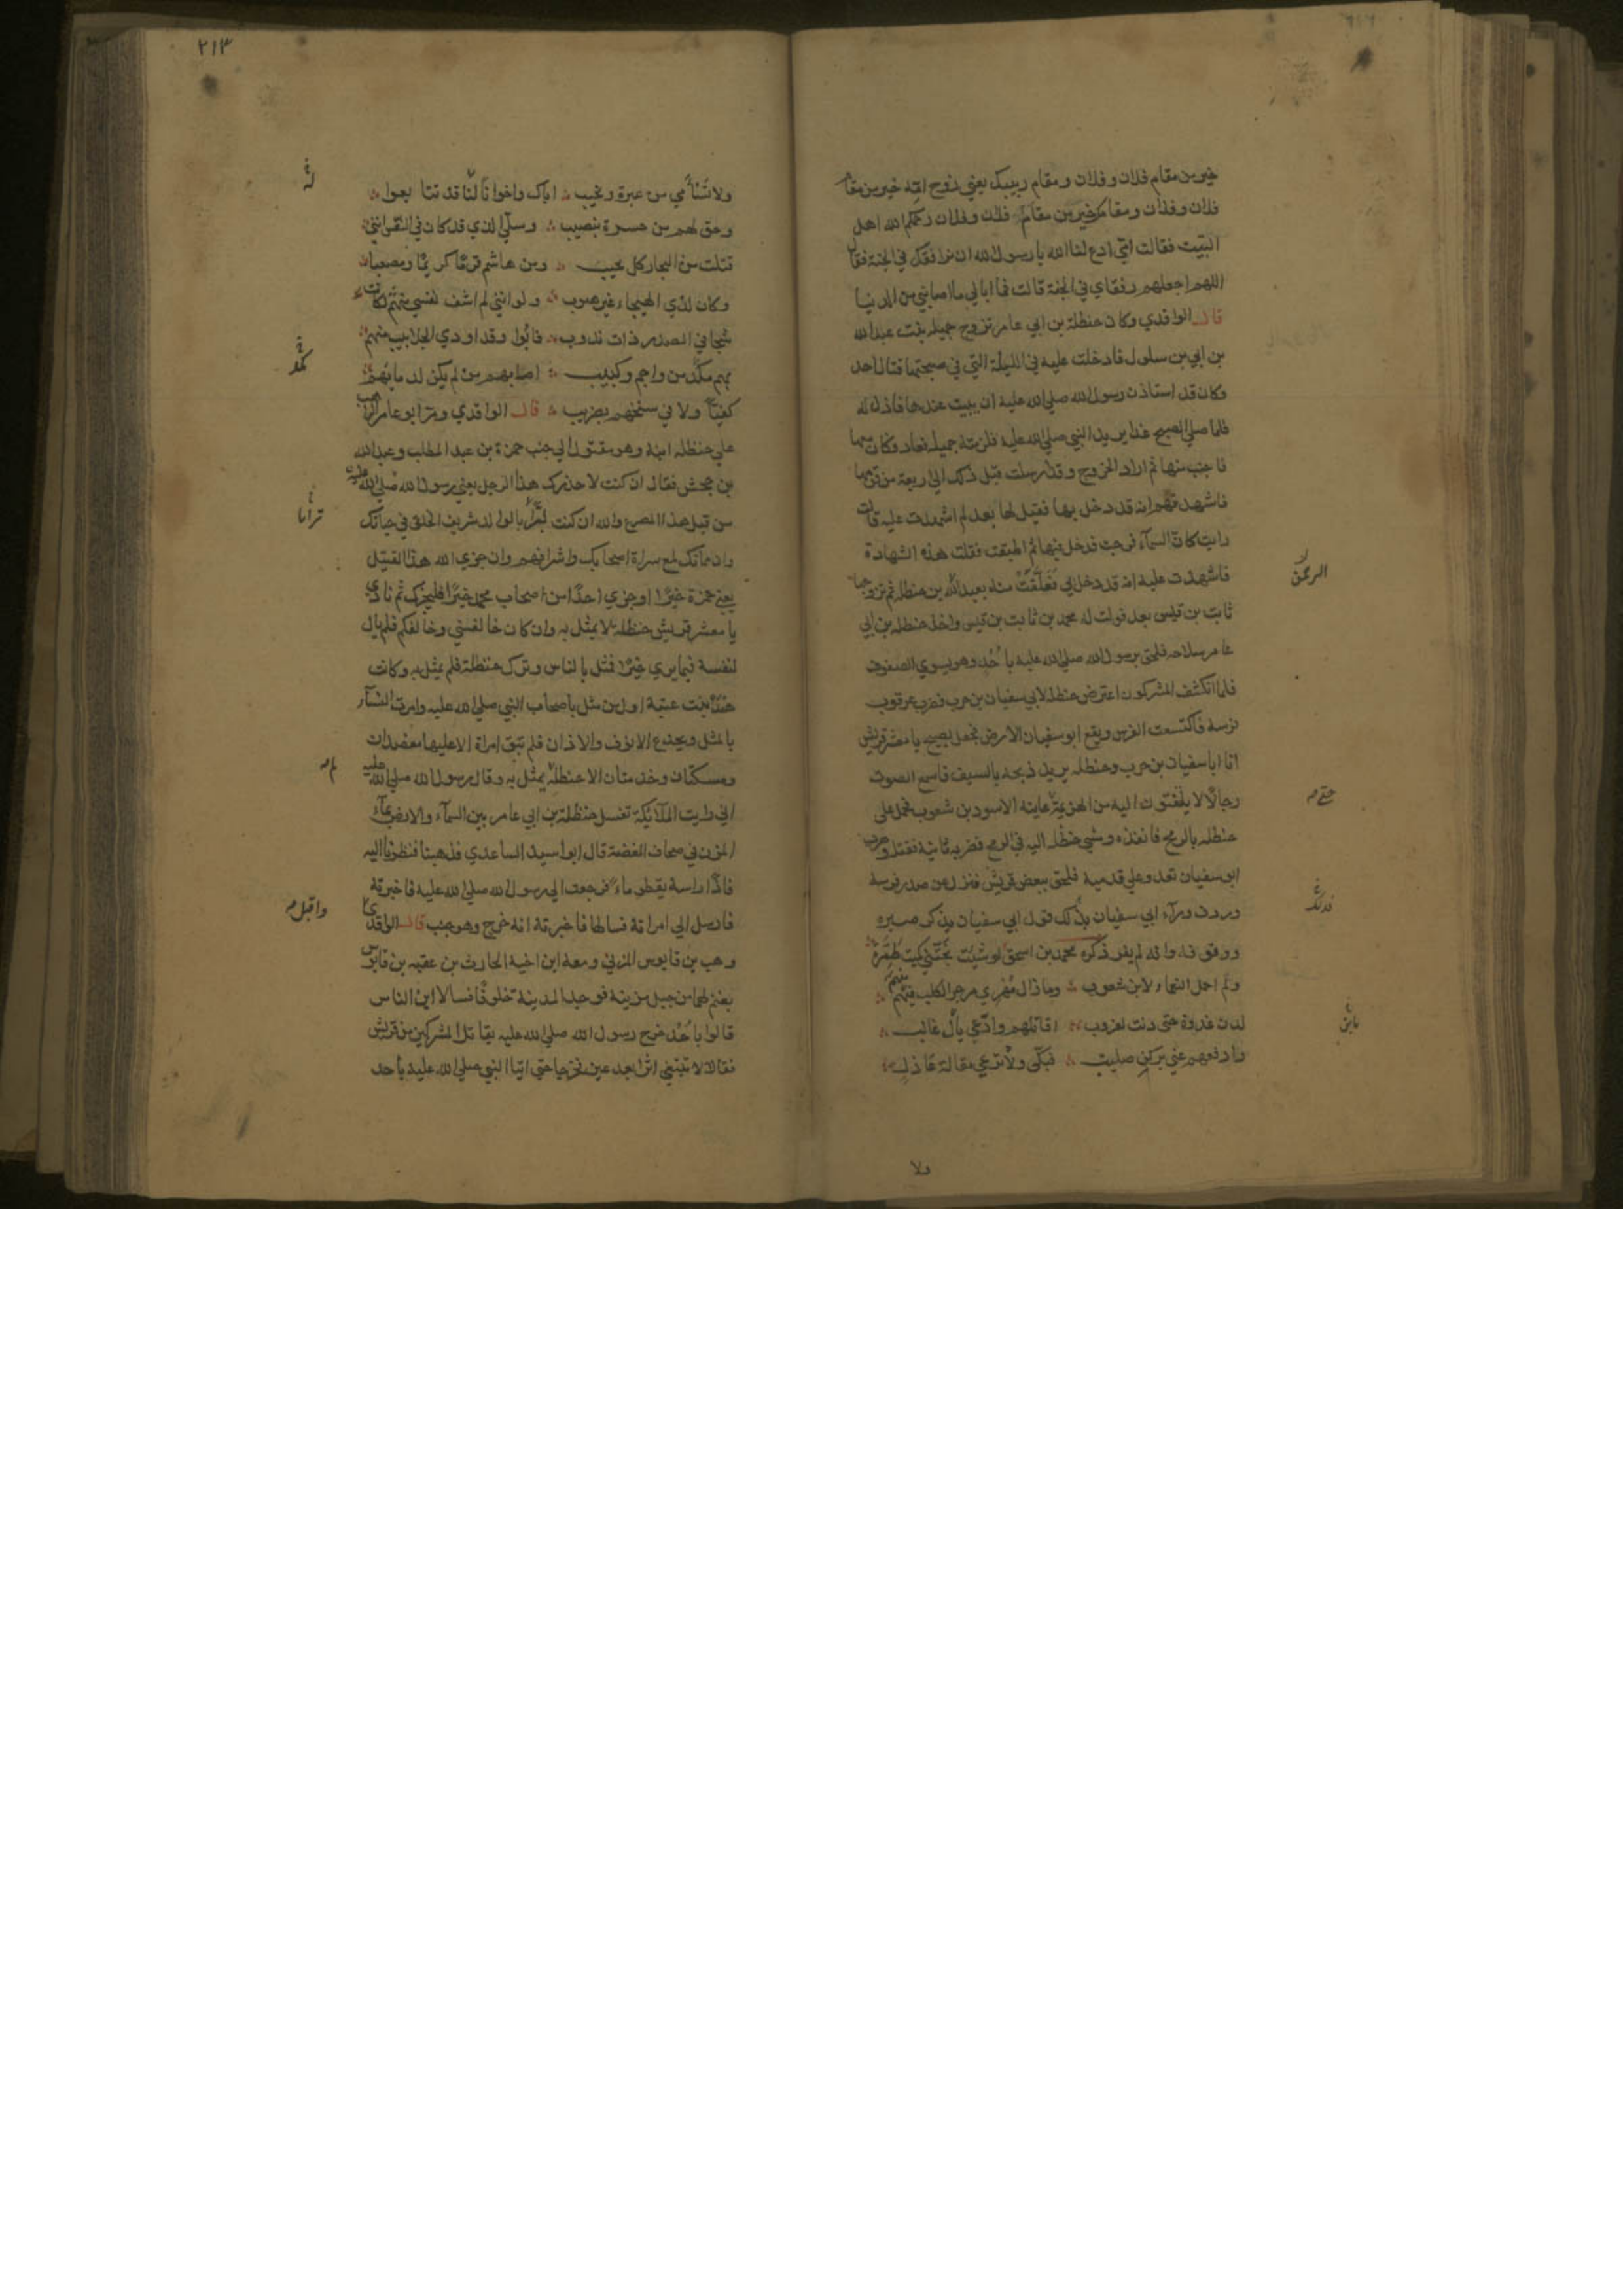 خير من مقام فلان وفلان ومقام ربيبك يعني زوج امه خير من مقام
فلان وفلان ومقامك خير من مقام فلان وفلان رحمكم الله اهل
البيت فقالت امي ادع لنا الله يا رسول الله ان نرافقك في الجنة فقال
اللهم اجعلهم رفقاي في الجنة قالت فما ابالي ما اصابني من الدنيا
قال الواقدي وكان حنظلة بن ابي عامر تزوج جميلة بنت عبد الله
بن ابي بن سلول فادخلت عليه في الليلة التي في صبحتها قتال احد
وكان قد استاذن رسول الله صلى الله عليه ان يبيت عندها فاذن له
فلما صلى الصبح غدا يريد النبي صلى الله عليه فلزمته جميلة فعاد وكان معها
فاجنب منها ثم اراد الخروج وقد ارسلت قبل ذلك الى اربعة من قومها
فاشهدتهم انه قد دخل بها فقيل لها بعد لم اشهدت عليه قالت
رايت كان السماء فرجت فدخل فيها ثم اطبقت فقلت هذه الشهادة
فاشهدت عليه انه قد دخل بي فعلقت منه بعبد الله بن حنظلة ثم تزوجها
ثابت بن قيس بعد فولدت له محمد بن ثابت بن قيس واخذ حنظلة بن ابي
عامر سلاحه فلحق برسول الله صلى الله عليه باحد وهو يسوي الصفوف
فلما انكشف المشركون اعترض حنظلة لابي سفيان بن حرب فضرب عرقوب
فرسه فاكتسعت الفرس ويقع ابو سفيان الى الارض فجعل يصيح يا معشر قريش
انا ابا سفيان بن حرب وحنظلة يريد ذبحه بالسيف فاسمع الصوت
رجالا لا يلتفتون اليه من الهزيمة عاينه الاسود بن شعوب فحمل على
حنظلة بالرمح فانفذه ومشى حنظلة اليه في الرمح فضربه ثانية فقتله وهرب
ابو سفيان تعدو على قدميه فلحق ببعض قريش فنزل عن صدر فرسه
وردف وراء ابي سفيان بذلك قول ابي سفيان يذكر صبره
ووقوفه وانه لم يفر ذكره محمد بن اسحق لو شئت نجتني كميت طمرة
ولم احمل النعماء لابن شعوب وما زال مهري مزجر الكلب منهم
لدن غدوة حتى دنت لغروب اقاتلهم وادعي يال غالب
وادفعهم عني بركن صليب فبكي ولا ترعي مقالة عاذل
ولا
الرحمن
حتى
فذلك
٢١٣
ولا تسأمي من عبرة ونحيب اباك واخوانا لنا قد تتابعوا
وحق لهم من حسرة بنصيب وسلي الذي قد كان في النفس انني
قتلت من النجار كل نجيب ومن هاشم قرما كريما ومصعبا
وكان لذي الهيجاء غير هيوب ولو انني لم اشف نفسي منهم لكانت
شجا في الصدر ذات ندوب فابوا وقد اودي الجلابيب منهم
بهم من واجم وكئيب اصابهم من لم يكن لدمائهم
كفيا ولا في سنخهم بضريب قال الواقدي ومر ابو عامر الراهب
على حنظلة ابنه وهو مقتول الى جنب حمزة بن عبد المطلب وعبد الله
بن جحش فقال ان كنت لاحذرك هذا الرجل يعني رسول الله صلى الله عليه
من قبل هذا المصرع والله ان كنت لبرا بالوالد شريف الخلق في حياتك
وان مماتك لمع سراة اصحابك واشرافهم وان جزي الله هذا القتيل
يعني حمزة خيرا او جزي احدا من اصحاب محمد خيرا فليجزك ثم نادي
يا معشر قريش حنظلة لا يمثل به وان كان خالفني وخالفكم فلم يال
لنفسه فيما يري خيرا فمثل بالناس وترك حنظلة فلم يمثل به وكانت
هند بنت عتبة اول من مثل باصحاب النبي صلى الله عليه وامرت النساء
بالمثل وبجدع الانوف والاذان فلم تبق امراة الا عليها معضدان
ومسكتان وخدمتان الا حنظلة لم يمثل به وقال رسول الله صلى الله عليه
اني رايت الملائكة تغسل حنظلة بن ابي عامر بين السماء والارض بماء
المزن في صحاف الفضة قال ابو اسيد الساعدي فذهبنا فنظرنا اليه
فاذا راسه يقطر ماء فرجعت الى رسول الله صلى الله عليه فاخبرته
فارسل الى امراته فسالها فاخبرته انه خرج وهو جنب قال الواقدي
وهب بن قابوس المزني ومعه ابن اخيه الحارث بن عقبه بن قابوس
بغنم لهما من جبل مزينة فوجدا المدينة خلوفا فسالا اين الناس
قالوا باحد خرج رسول الله صلى الله عليه يقاتل المشركين من قريش
فقالا لا نبتغي اثرا بعد عين فخرجا حتى اتيا النبي صلى الله عليه باحد
واقبل